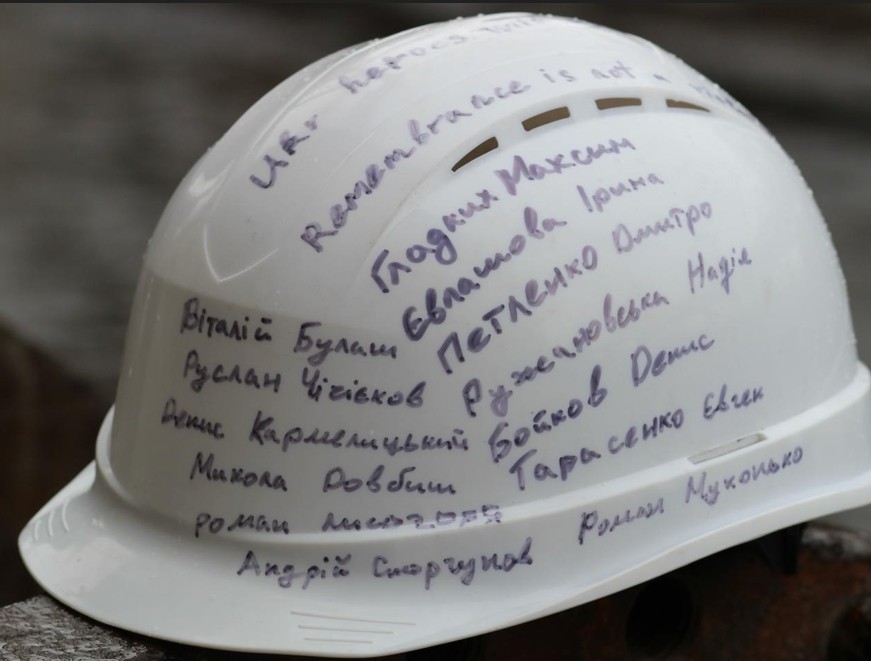 Ukr heroes
Remembrance is not a
Гладких Максим
Євлашова Ірина
Петленко Дмитро
Ружановська Надія
Бойков Денис
Тарасенко Євген
Роман Мухонько
Віталій Булаш
Руслан Чічієков
Денис Кармелицький
Микола Довбиш
роман
Андрій Сморчунов